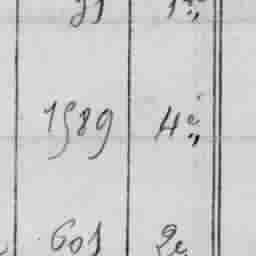 1589 4e
601 2e